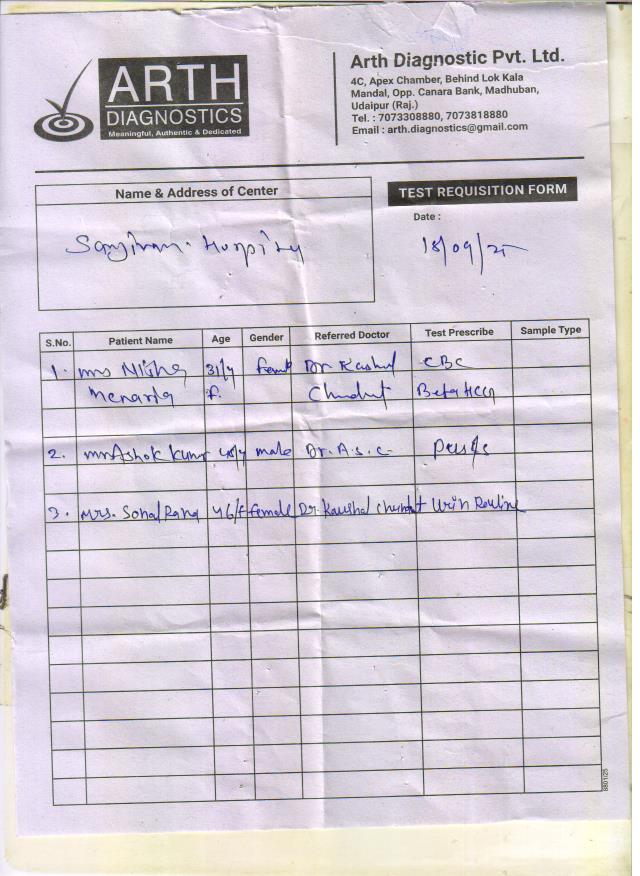 ARTH
DIAGNOSTICS
Meaningful, Authentic & Dedicated
Arth Diagnostic Pvt. Ltd.
4C, Apex Chamber, Behind Lok Kala
Mandal, Opp. Canara Bank, Madhuban,
Udaipur (Raj.)
Tel. : 7073308880, 7073818880
Email : arth.diagnostics@gmail.com
Name & Address of Center
TEST REQUISITION FORM
Date :
18/09/25
S.No. Patient Name Age Gender Referred Doctor Test Prescribe Sample Type
1. mrs 31/y Dr CBC
Menaria f. Beta HCG
2. mr Ashok male Dr. A.S.C. Pus c/s
3. Mrs. Sonal Rana 46/f female Dr. Kaushal Urin Routine
8801/25